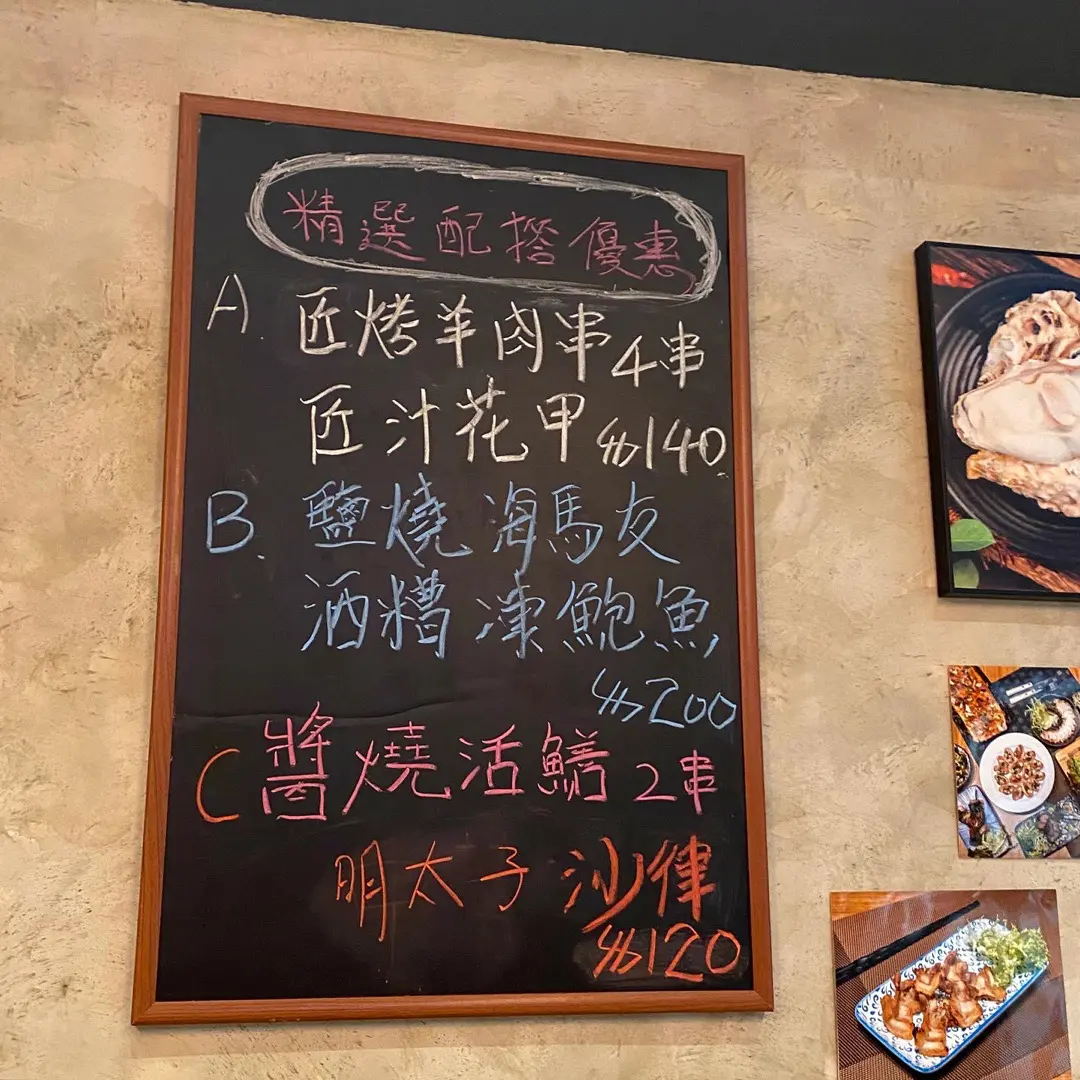 精選配搭優惠
A 匠烤羊肉串4串
匠汁花甲 $140
B. 鹽燒海馬友
酒糟凍鮑魚
$200
C 醬燒活鱔2串
明太子沙律
$120